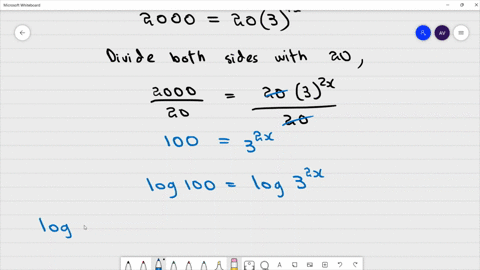 Microsoft Whiteboard
2000 = 20(3)
AV
Divide both sides with 20,
2000/20 = 20(3)^2x/20
100 = 3^2x
log 100 = log 3^2x
log